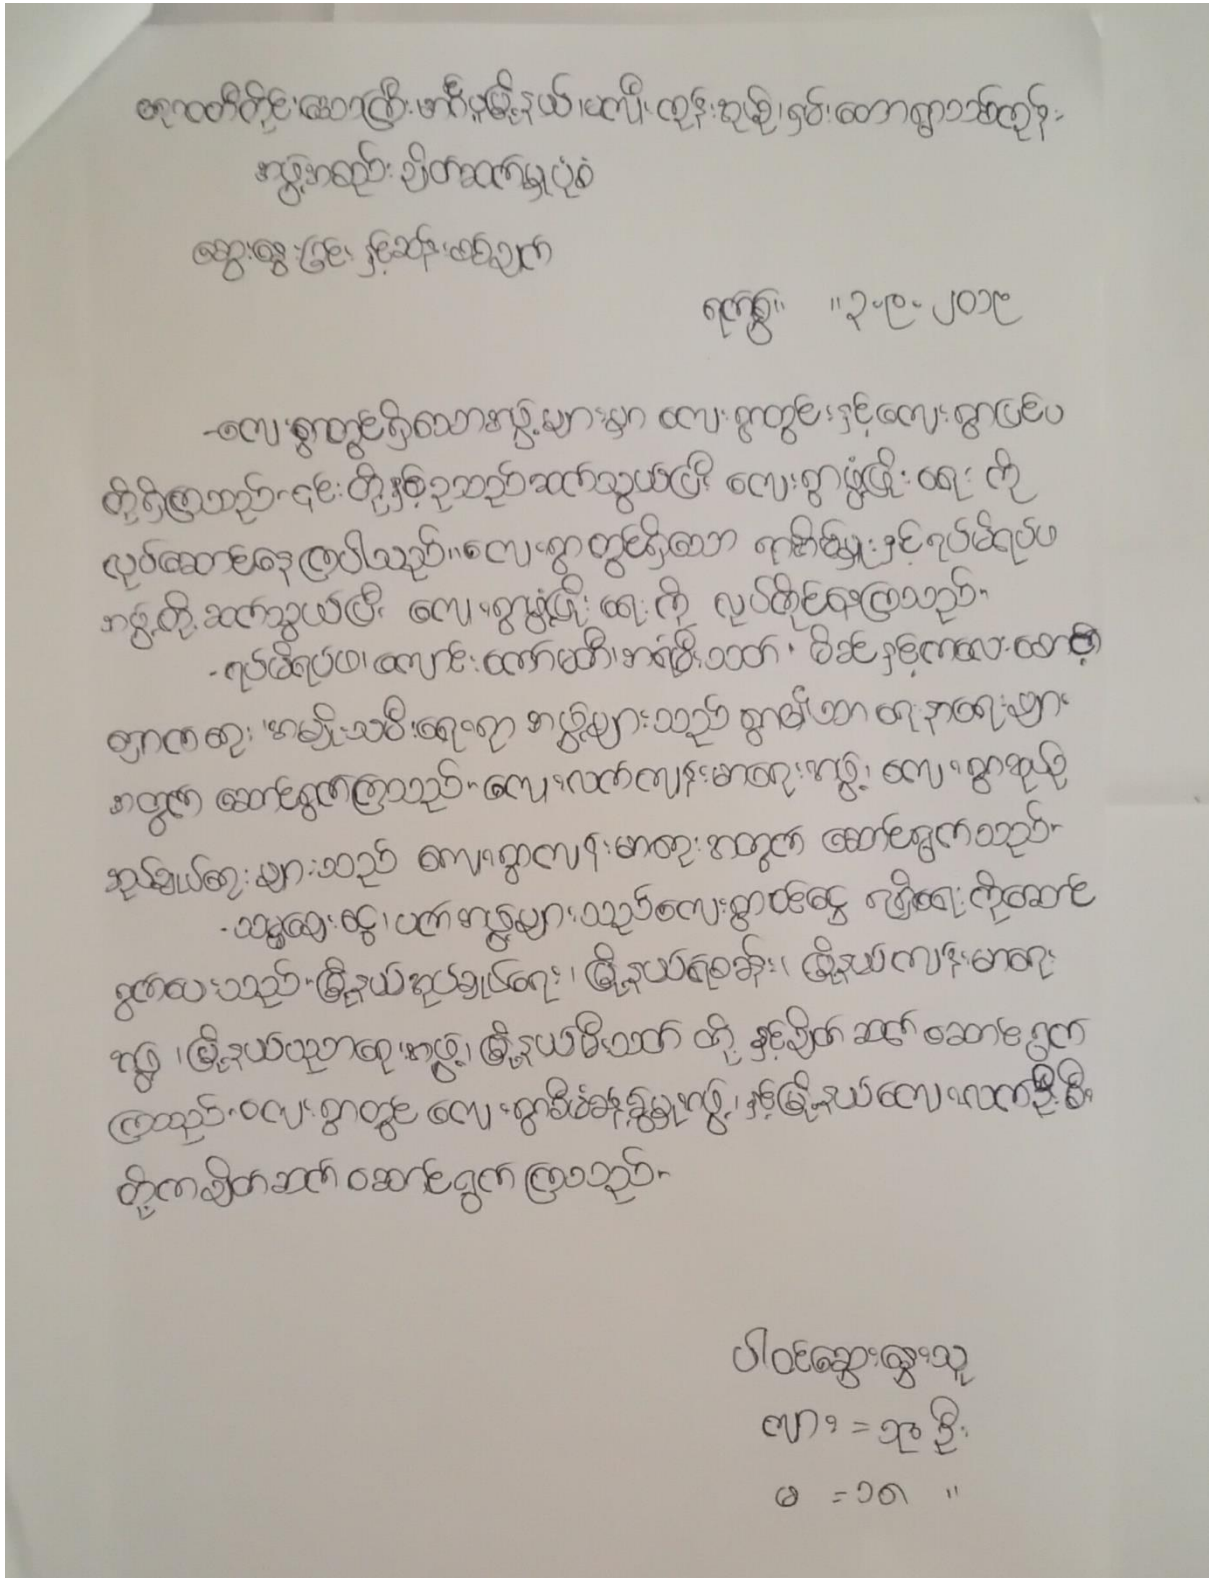 ဧရာဝတီတိုင်းဒေသကြီး၊ မြို့နယ်၊ ကျုံးကွန်းအုပ်စု၊ ရှမ်းတောရွာသစ်ကုန်း
အဖွဲ့အစည်း ချိတ်ဆက်မှုပုံစံ
ဆွေးနွေးခြင်း နှင့်ဆန်းစစ်ချက်
ရက်စွဲ။ ။၃-၉-၂၀၁၉
-ကျေးရွာတွင်ရှိသောအဖွဲ့များမှာ ကျေးရွာတွင်းနှင့်ကျေးရွာပြင်ပ
တို့ရှိကြသည်။၎င်းတို့နှစ်ခုသည်ဆက်သွယ်ပြီး ကျေးရွာဖွံ့ဖြိုးရေး ကို
လုပ်ဆောင်နေကြပါသည်။ကျေးရွာတွင်ရှိသော ရာအိမ်မှူးနှင့်ရပ်မိရပ်ဖ
အဖွဲ့တို့ဆက်သွယ်ပြီး ကျေးရွာဖွံ့ဖြိုးရေးကို လုပ်ကိုင်နေကြသည်။
-ရပ်မိရပ်ဖ၊ကျောင်းကော်မတီ၊အရံမီးသတ်၊ မိခင်နှင့်ကလေးစောင့်
ရှောက်ရေး၊အမျိုးသမီးရေးရာ အဖွဲ့များသည် ရွာ၏သာရေးနာရေးများ
အတွက် ဆောင်ရွက်ကြသည်။ကျေးလက်ကျန်းမာရေးအဖွဲ့၊ ကျေးရွာအုပ်စု
အုပ်ချုပ်ရေးများသည် ကျေးရွာကျန်းမာရေးအတွက် ဆောင်ရွက်သည်။
-သမ္မချေးငွေ၊ပက်အဖွဲ့များသည်ကျေးရွာဝင်ငွေ ရရှိရေးကိုဆောင်
ရွက်ပေးသည်။မြို့နယ်အုပ်ချုပ်ရေး၊မြို့နယ်ရဲစခန်း၊ မြို့နယ်ကျန်းမာရေး
အဖွဲ့၊မြို့နယ်ပညာရေးအဖွဲ့၊မြို့နယ်မီးသတ် တို့နှင့်ချိတ်ဆက်ဆောင်ရွက်
ကြသည်။ကျေးရွာတွင် ကျေးရွာစီမံခန့်ခွဲမှုအဖွဲ့၊နှင့်မြို့နယ်ကျေးလက်ဦးစီး
တို့ကချိတ်ဆက်ဆောင်ရွက်ကြသည်။
ပါဝင်ဆွေးနွေးသူ
ကျား = ဦး
မ =၁၈ ။